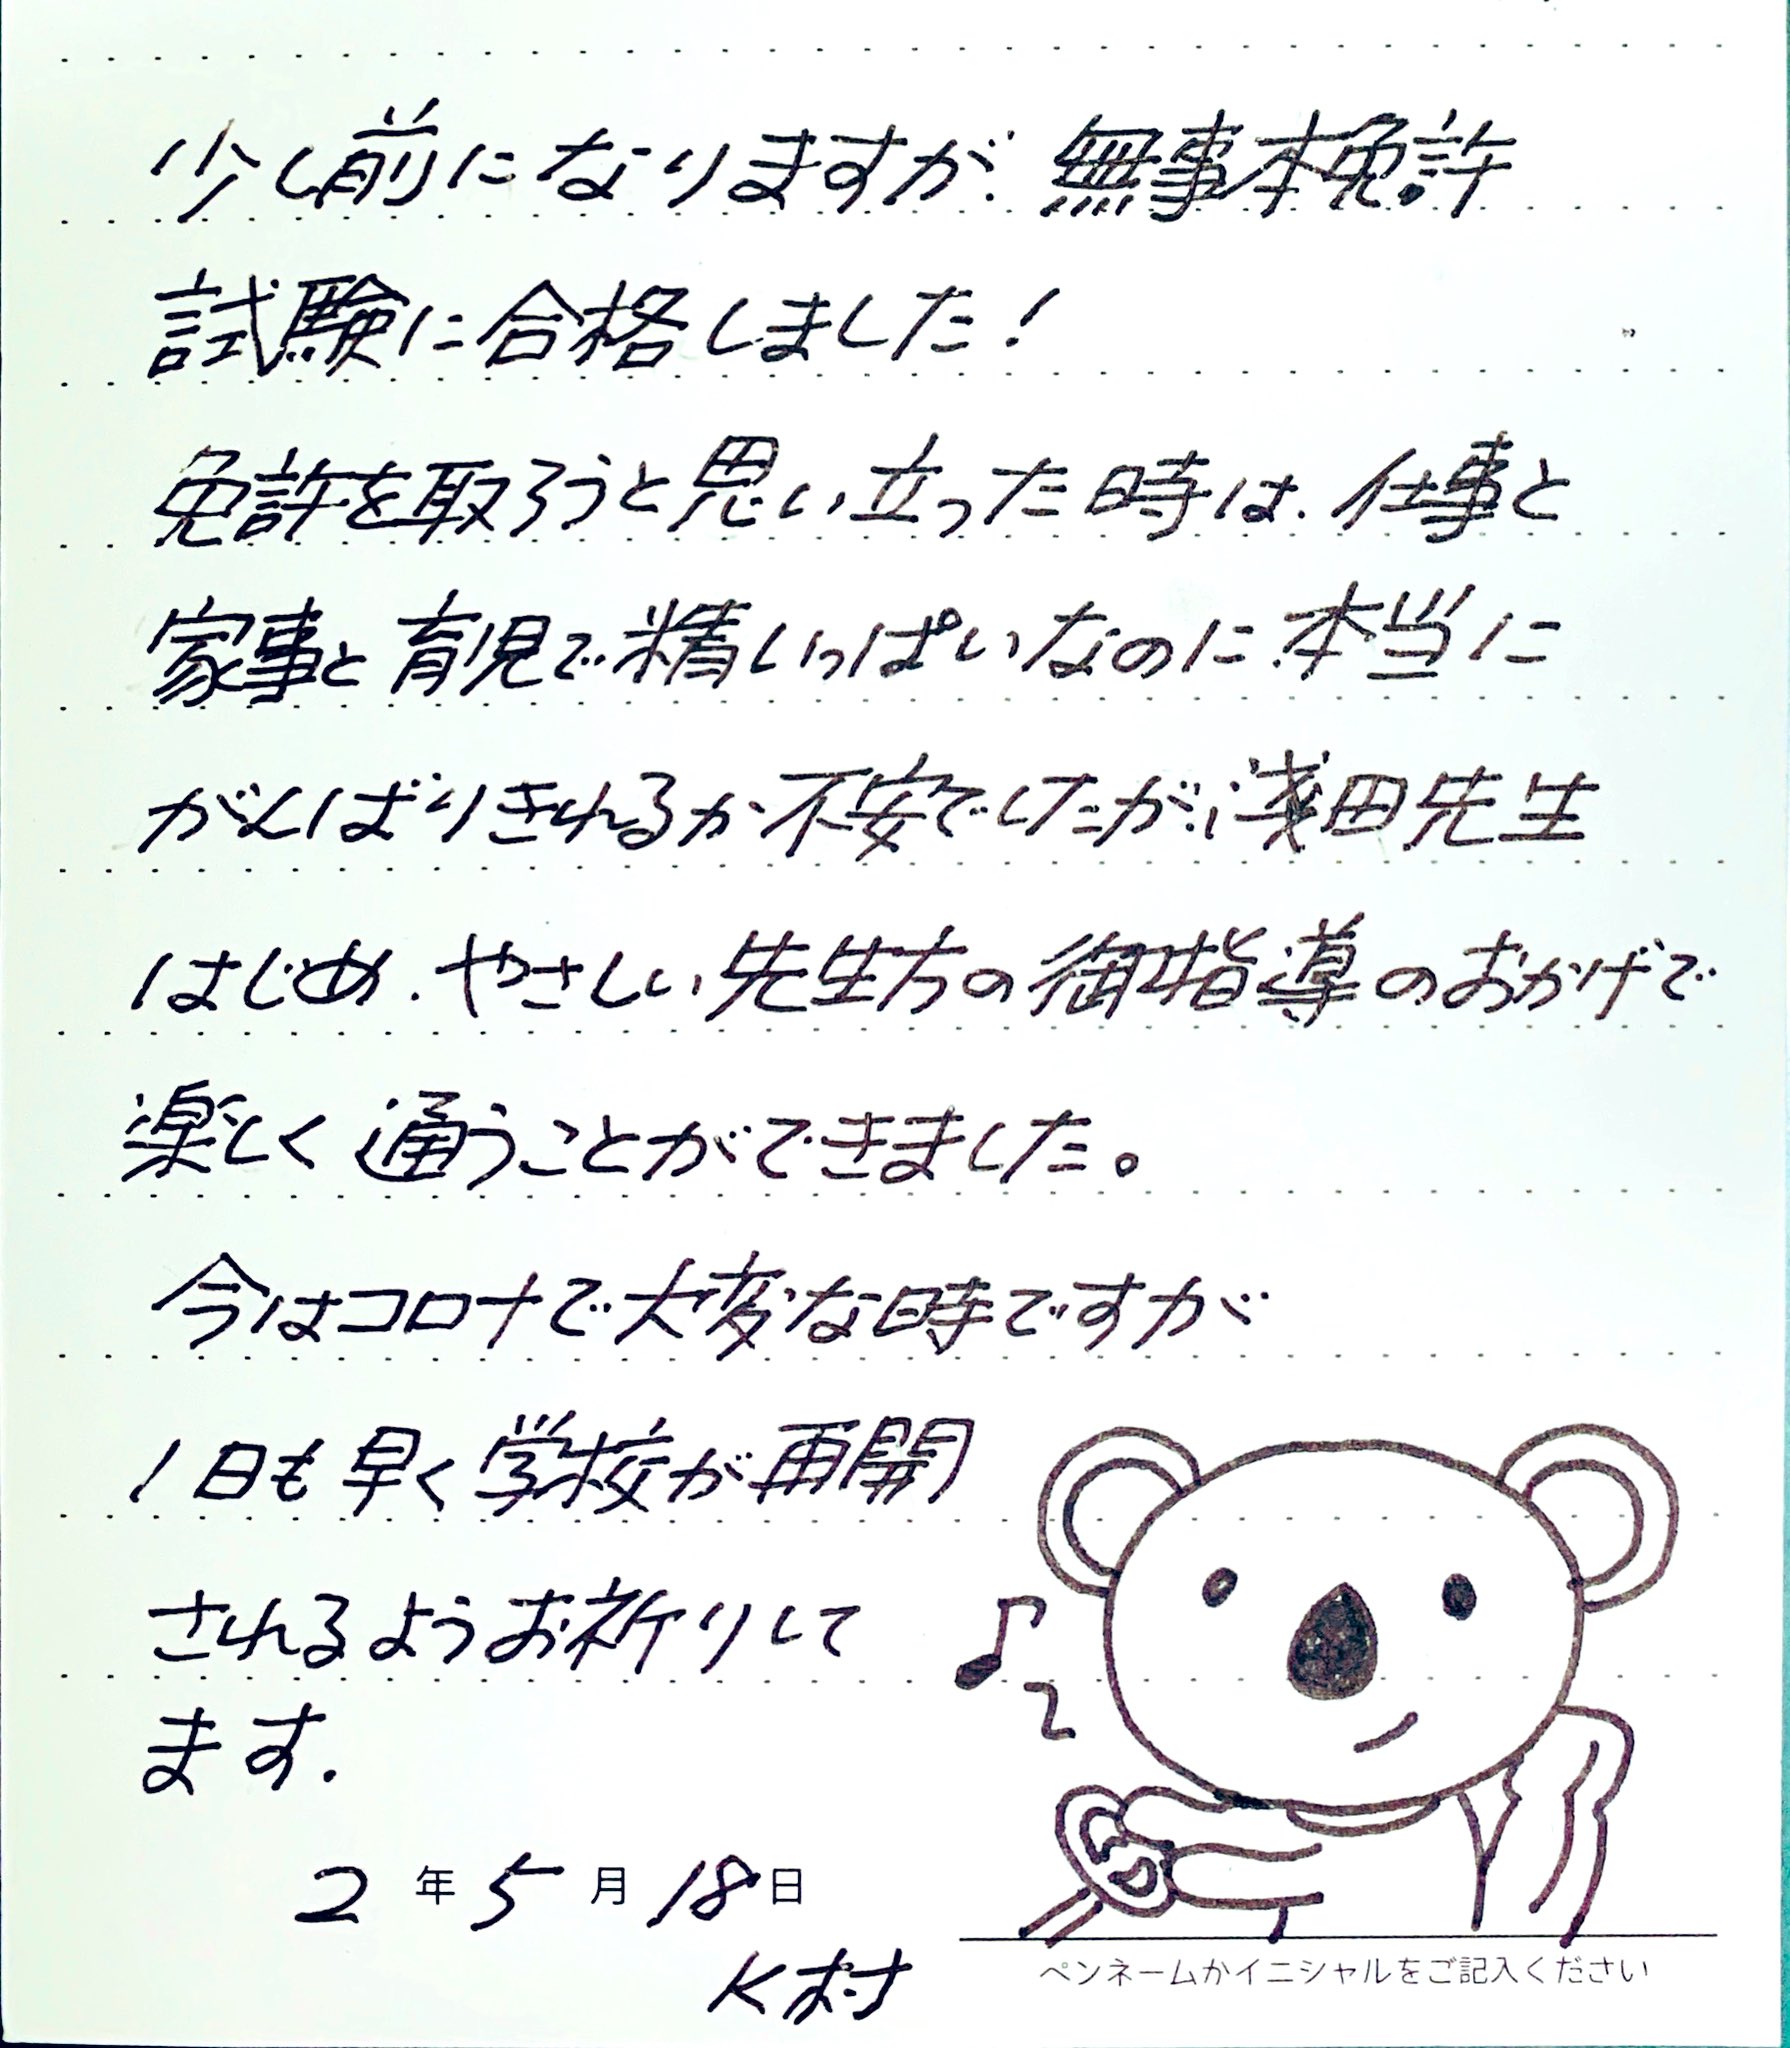 少し前になりますが、無事本免許
試験に合格しました!
免許を取ろうと思い立った時は、仕事と
家事と育児で精いっぱいなのに、本当に
がんばりきれるか不安でしたが、浅田先生
はじめ、やさしい先生方の御指導のおかげで
楽しく通うことができました。
今はコロナで大変な時ですが
1日も早く学校が再開
されるようお祈りして
ます.
2年5月18日
K村
ペンネームかイニシャルをご記入ください